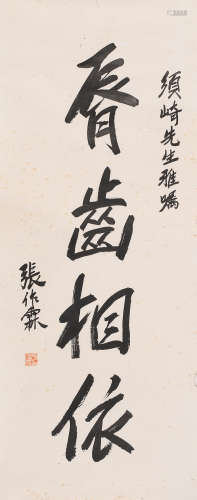 須崎先生雅囑
脣齒相依
張作霖